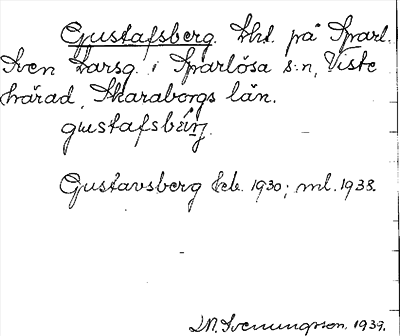 Gustafsberg. Lht. på Sparl.
Sven Larsg. i Sparlösa s:n, Viste
härad, Skaraborgs län.
gustafsbärj.
Gustavsberg Eeb. 1930; ml. 1938.
D.N. Svenungsson. 1939.